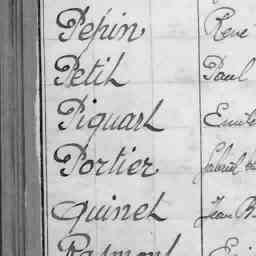 Pépin René
Petit Paul
Piquart Emile
Portier Gabriel
Quinet Jean B